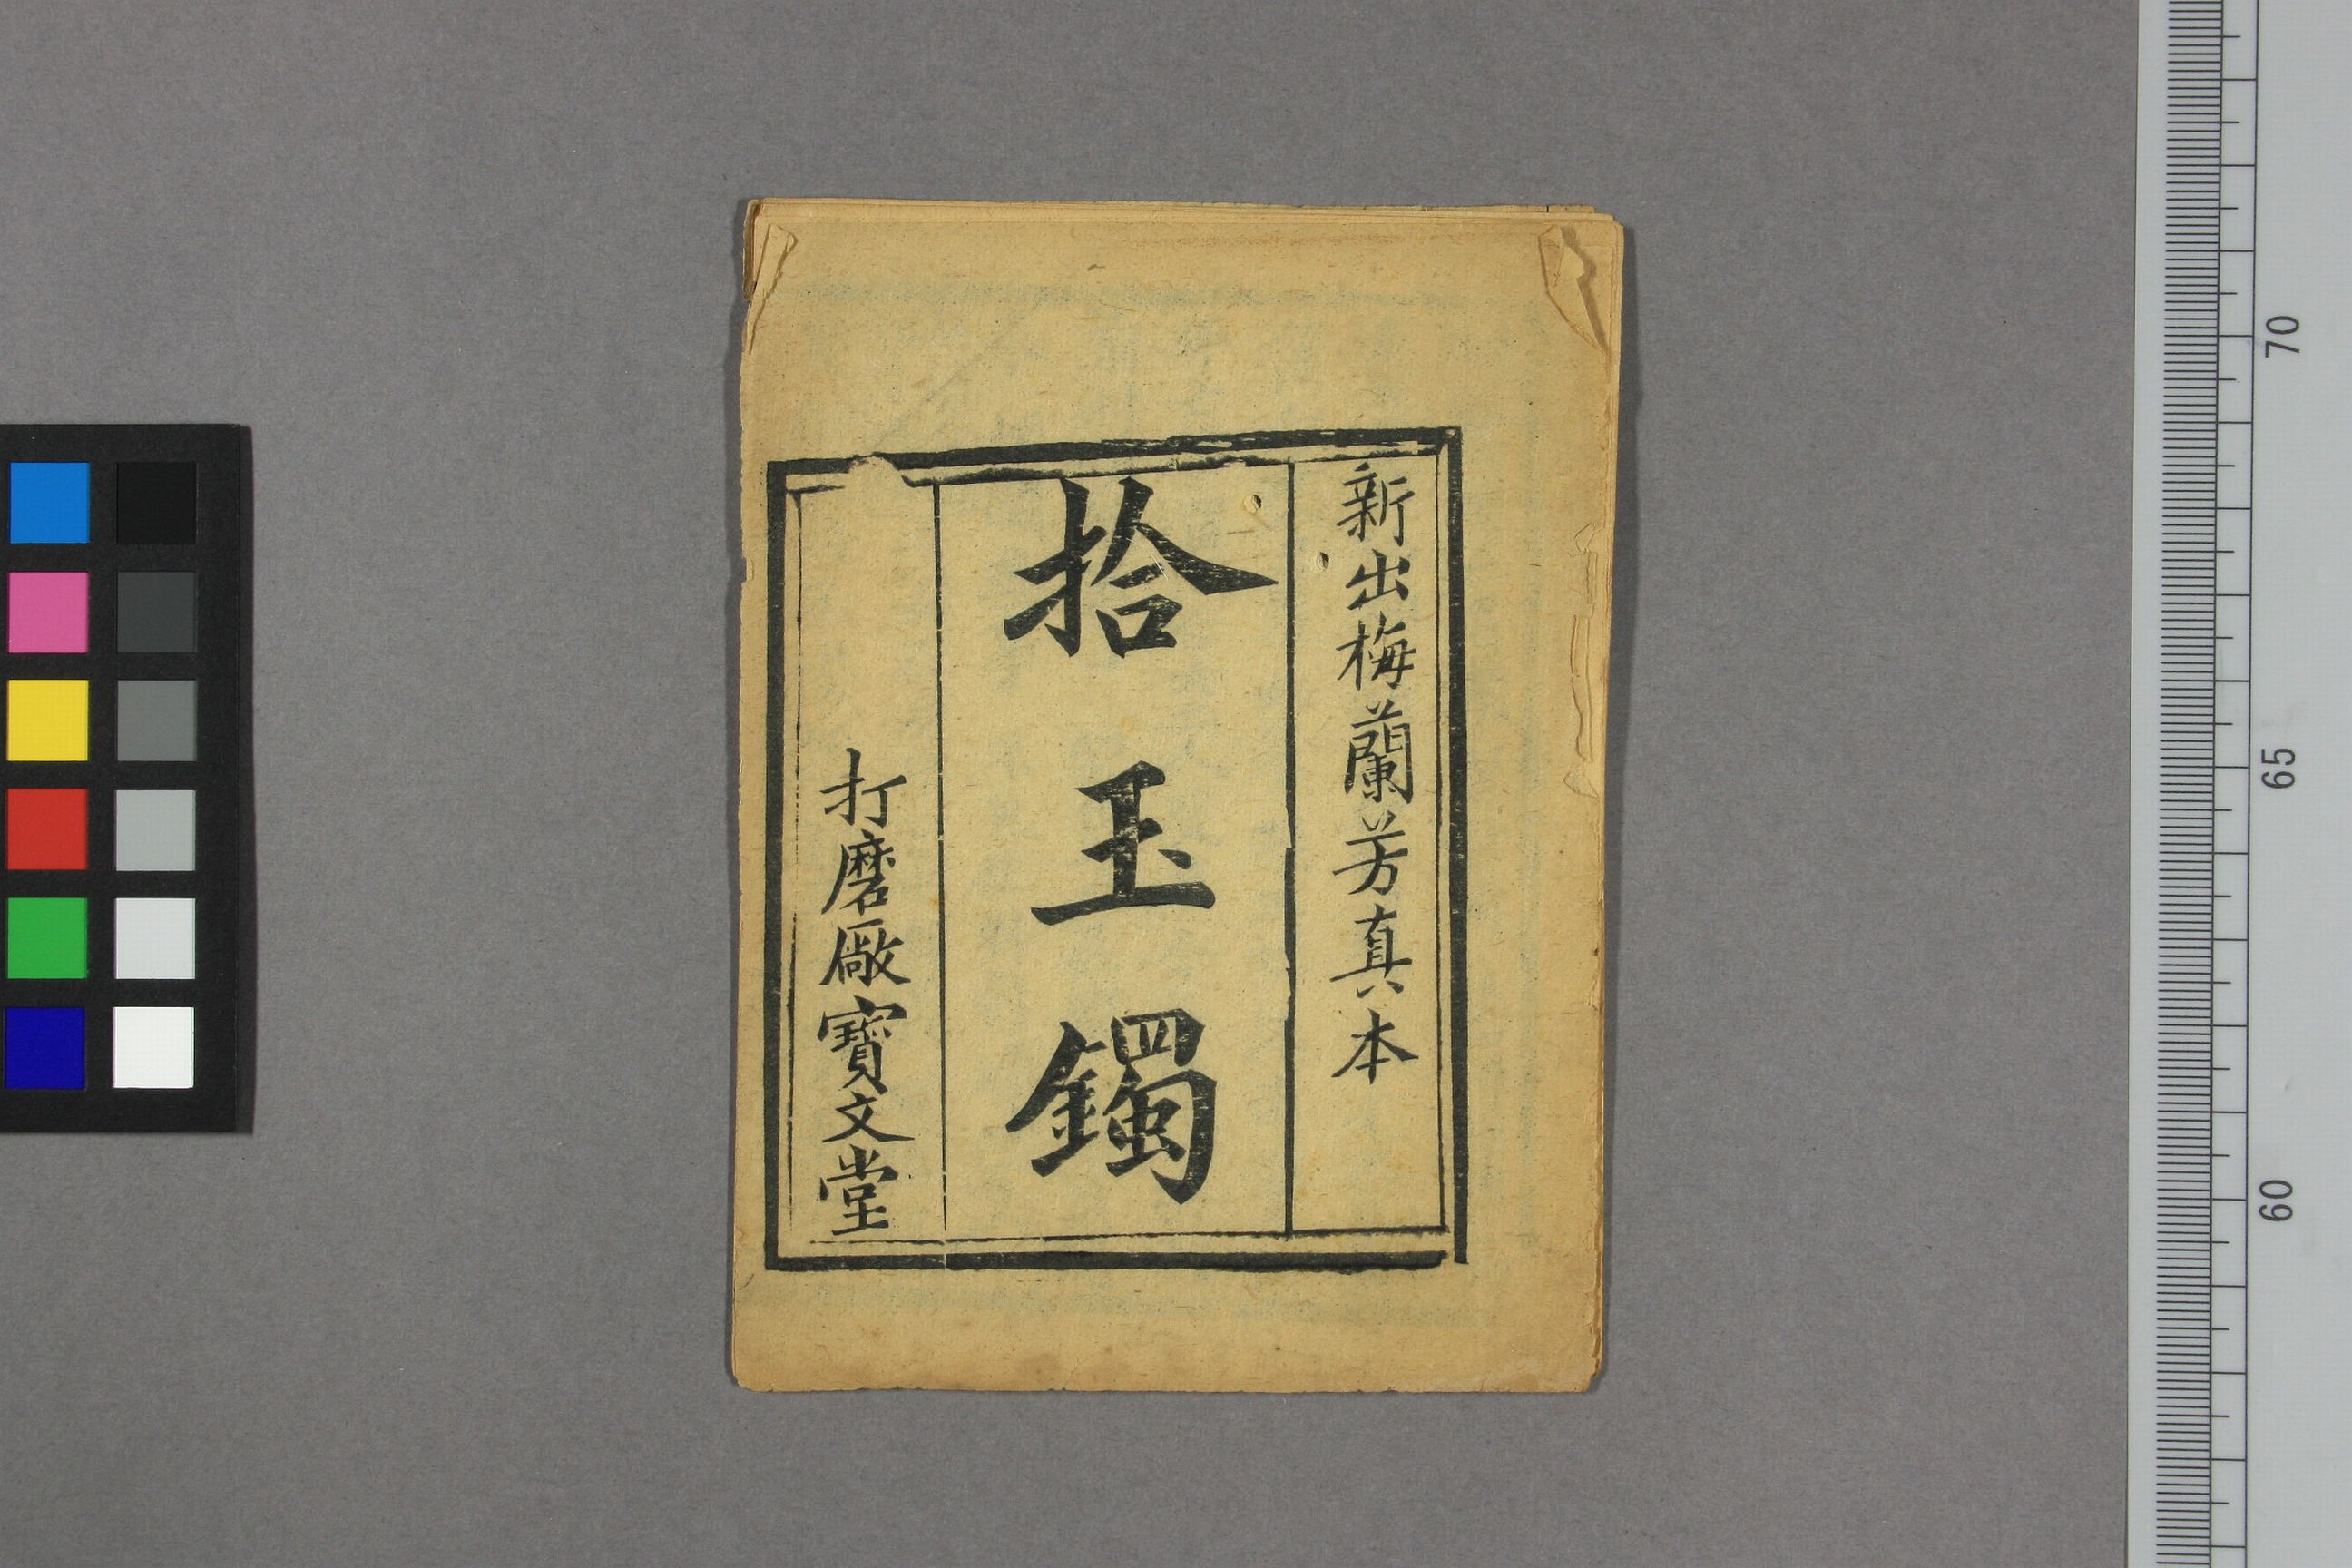 新出梅蘭芳真本
拾玉鐲
打磨厰寶文堂
70
65
60